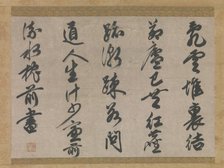 亂雲堆裏結
茆廬已共紅塵
跡漸疎莫問
人生計事窓前
流水枕前書